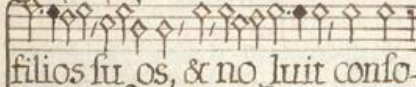 filios su os, & no luit conso-